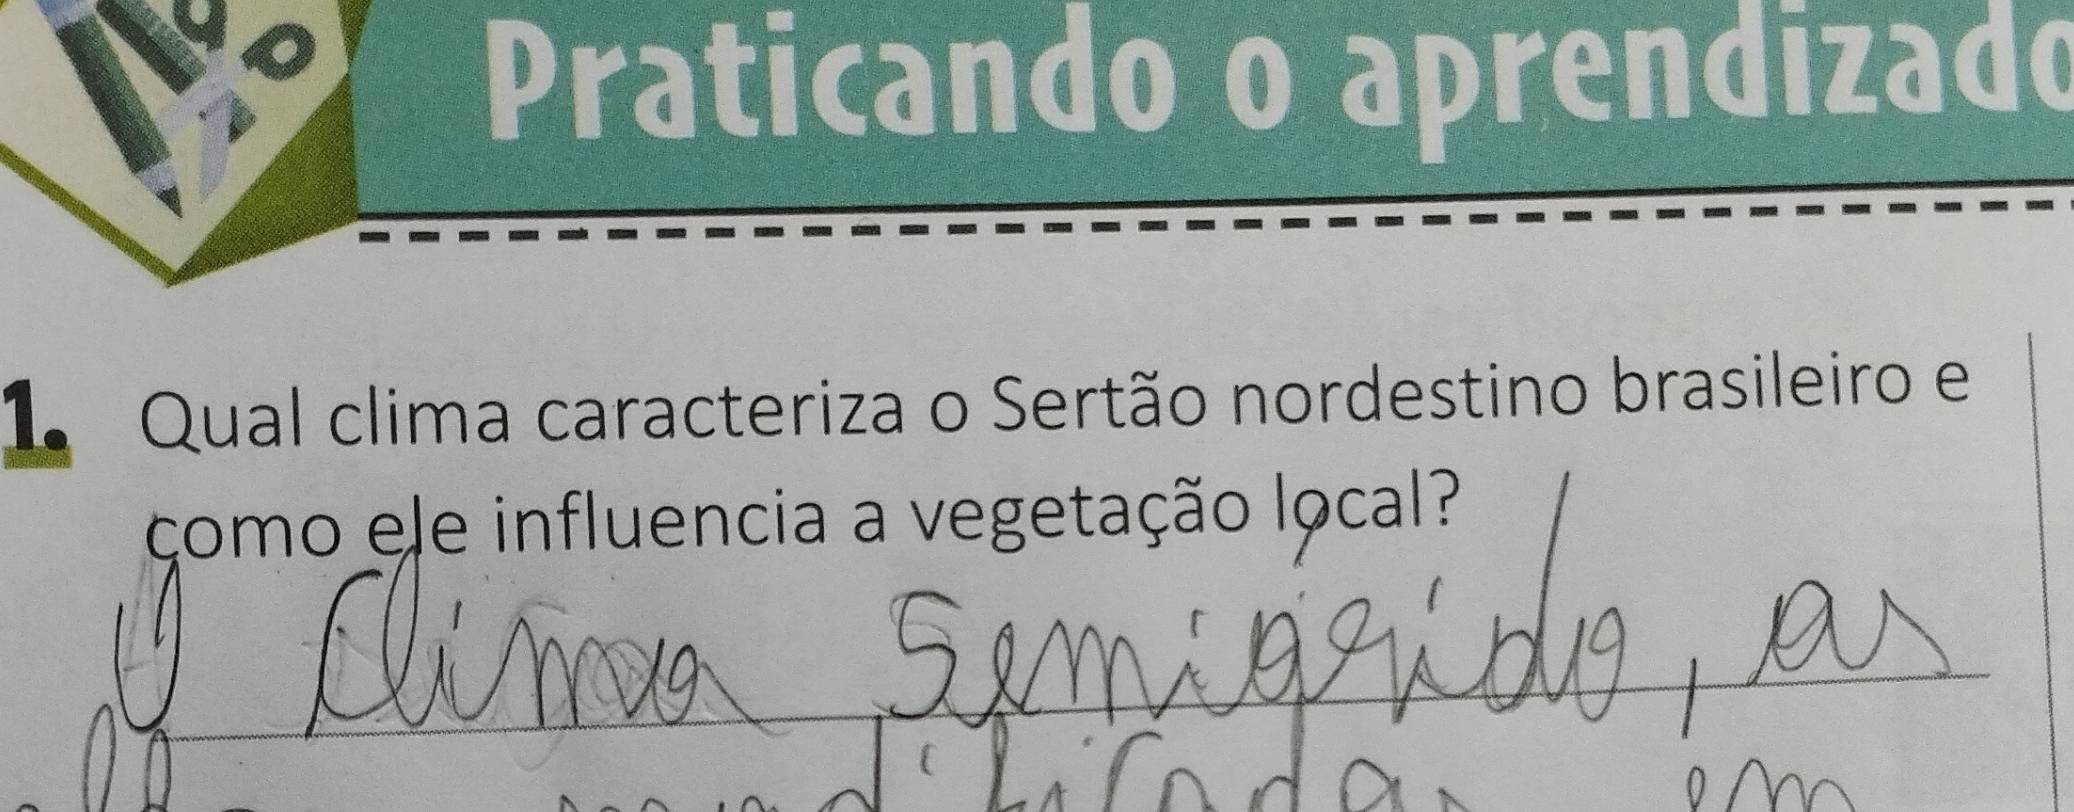 Praticando o aprendizado
1. Qual clima caracteriza o Sertão nordestino brasileiro e
como ele influencia a vegetação local?
O clima semiárido, as
em